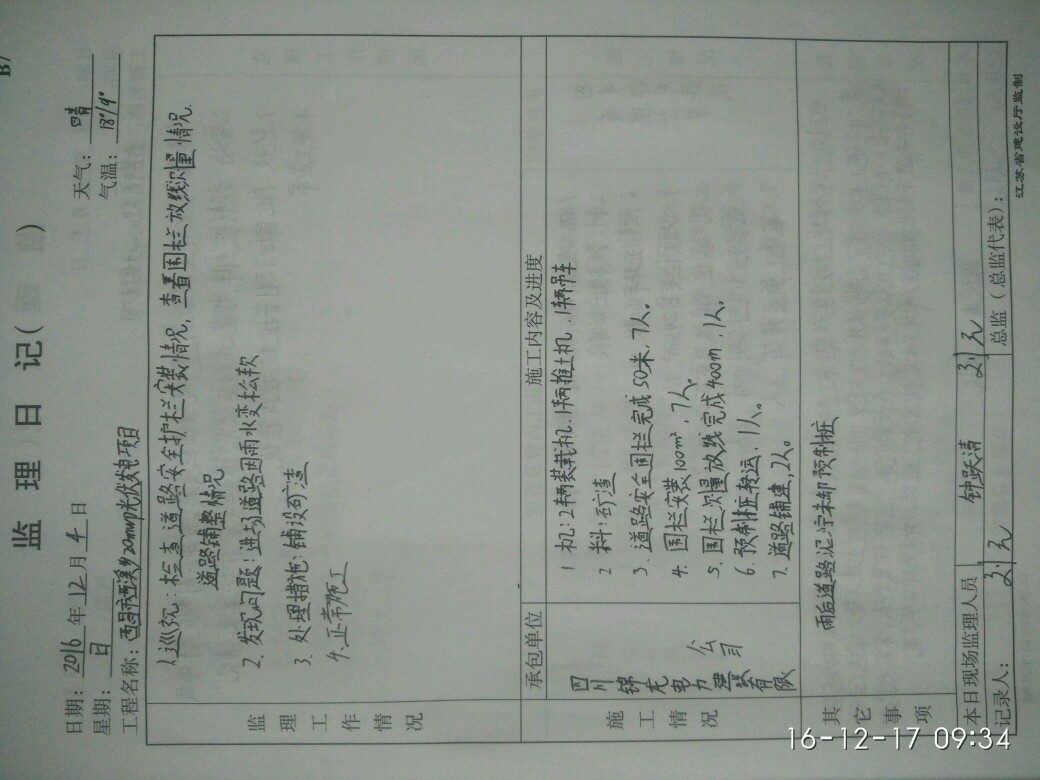 B7
监 理 日 记（    ）
日期：2016 年 12 月 4 日
天气：晴
星期：日
气温：18°/9°
工程名称：西昌市西溪乡20mwp光伏发电项目
监理工作情况
1.巡视：检查道路安全护栏安装情况，查看围栏放线测量情况.
道路铺整情况
2.发现问题：进场道路因雨水变松软
3.处理措施：铺设矿渣
4.正常施工
承包单位
施工内容及进度
施工情况
四川锦龙电力建设有限公司
1 机：2辆装载机.1辆推土机.1辆吊车
2 料：矿渣
3.道路安全围栏完成50米.7人。
4.围栏安装100m².7人.
5.围栏测量放线完成400m.1人。
6.预制桩转运.1人。
7.道路铺建.2人。
其它事项
雨后道路泥泞未卸预制桩
本日现场监理人员
钟跃清
刘元
记录人：
刘元
总监（总监代表）：
江苏省建设厅监制
16-12-17 09:34